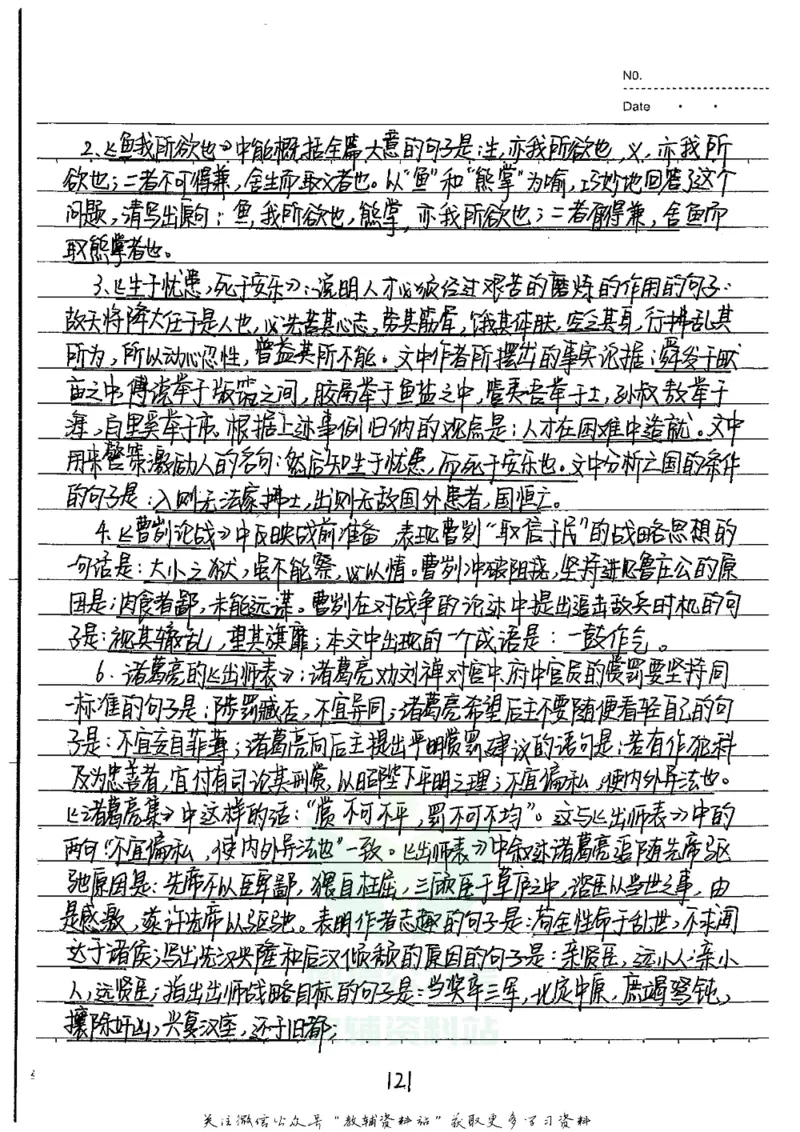 NO.
Date
2.《鱼我所欲也》中能概括全篇大意的句子是:生,亦我所欲也,义,亦我所
欲也;二者不可得兼,舍生而取义者也。以"鱼"和"熊掌"为喻,巧妙地回答了这个
问题,请写出原句:鱼,我所欲也,熊掌,亦我所欲也;二者不可得兼,舍鱼而
取熊掌者也。
3.《生于忧患,死于安乐》:说明人才必须经过艰苦的磨炼的作用的句子:
故天将降大任于是人也,必先苦其心志,劳其筋骨,饿其体肤,空乏其身,行拂乱其
所为,所以动心忍性,曾益其所不能。文中作者所摆出的事实论据:舜发于畎
亩之中,傅说举于版筑之间,胶鬲举于鱼盐之中,管夷吾举于士,孙叔敖举于
海,百里奚举于市。根据上述事例归纳的观点是:人才在困难中造就。文中
用来警策激励人的名句:然后知生于忧患,而死于安乐也。文中分析亡国的条件
的句子是:入则无法家拂士,出则无敌国外患者,国恒亡。
4.《曹刿论战》中反映战前准备,表现曹刿"取信于民"的战略思想的
句话是:大小之狱,虽不能察,必以情。曹刿冲破阻挠,坚持进见鲁庄公的原
因是:肉食者鄙,未能远谋。曹刿在对战争的论述中提出追击敌兵时机的句
子是:视其辙乱,望其旗靡;本文中出现的一个成语是:一鼓作气。
6.诸葛亮的《出师表》:诸葛亮劝刘禅对宫中府中官员的赏罚要坚持同
一标准的句子是:陟罚臧否,不宜异同;诸葛亮希望后主不要随便看轻自己的句
子是:不宜妄自菲薄;诸葛亮向后主提出平明赏罚建议的语句是:若有作奸犯科
及为忠善者,宜付有司论其刑赏,以昭陛下平明之理;不宜偏私,使内外异法也。
《诸葛亮集》中这样的话:"赏不可不平,罚不可不均"。这与《出师表》中的
两句"不宜偏私,使内外异法也"一致。《出师表》中叙述诸葛亮追随先帝驱
驰原因是:先帝不以臣卑鄙,猥自枉屈,三顾臣于草庐之中,谘臣以当世之事,由
是感激,遂许先帝以驱驰。表明作者志趣的句子是:苟全性命于乱世,不求闻
达于诸侯;写出先汉兴隆和后汉倾颓的原因的句子是:亲贤臣,远小人;亲小
人,远贤臣;指出出师战略目标的句子是:当奖率三军,北定中原,庶竭驽钝,
攘除奸凶,兴复汉室,还于旧都;
121
关注微信公众号"教辅资料站"获取更多学习资料